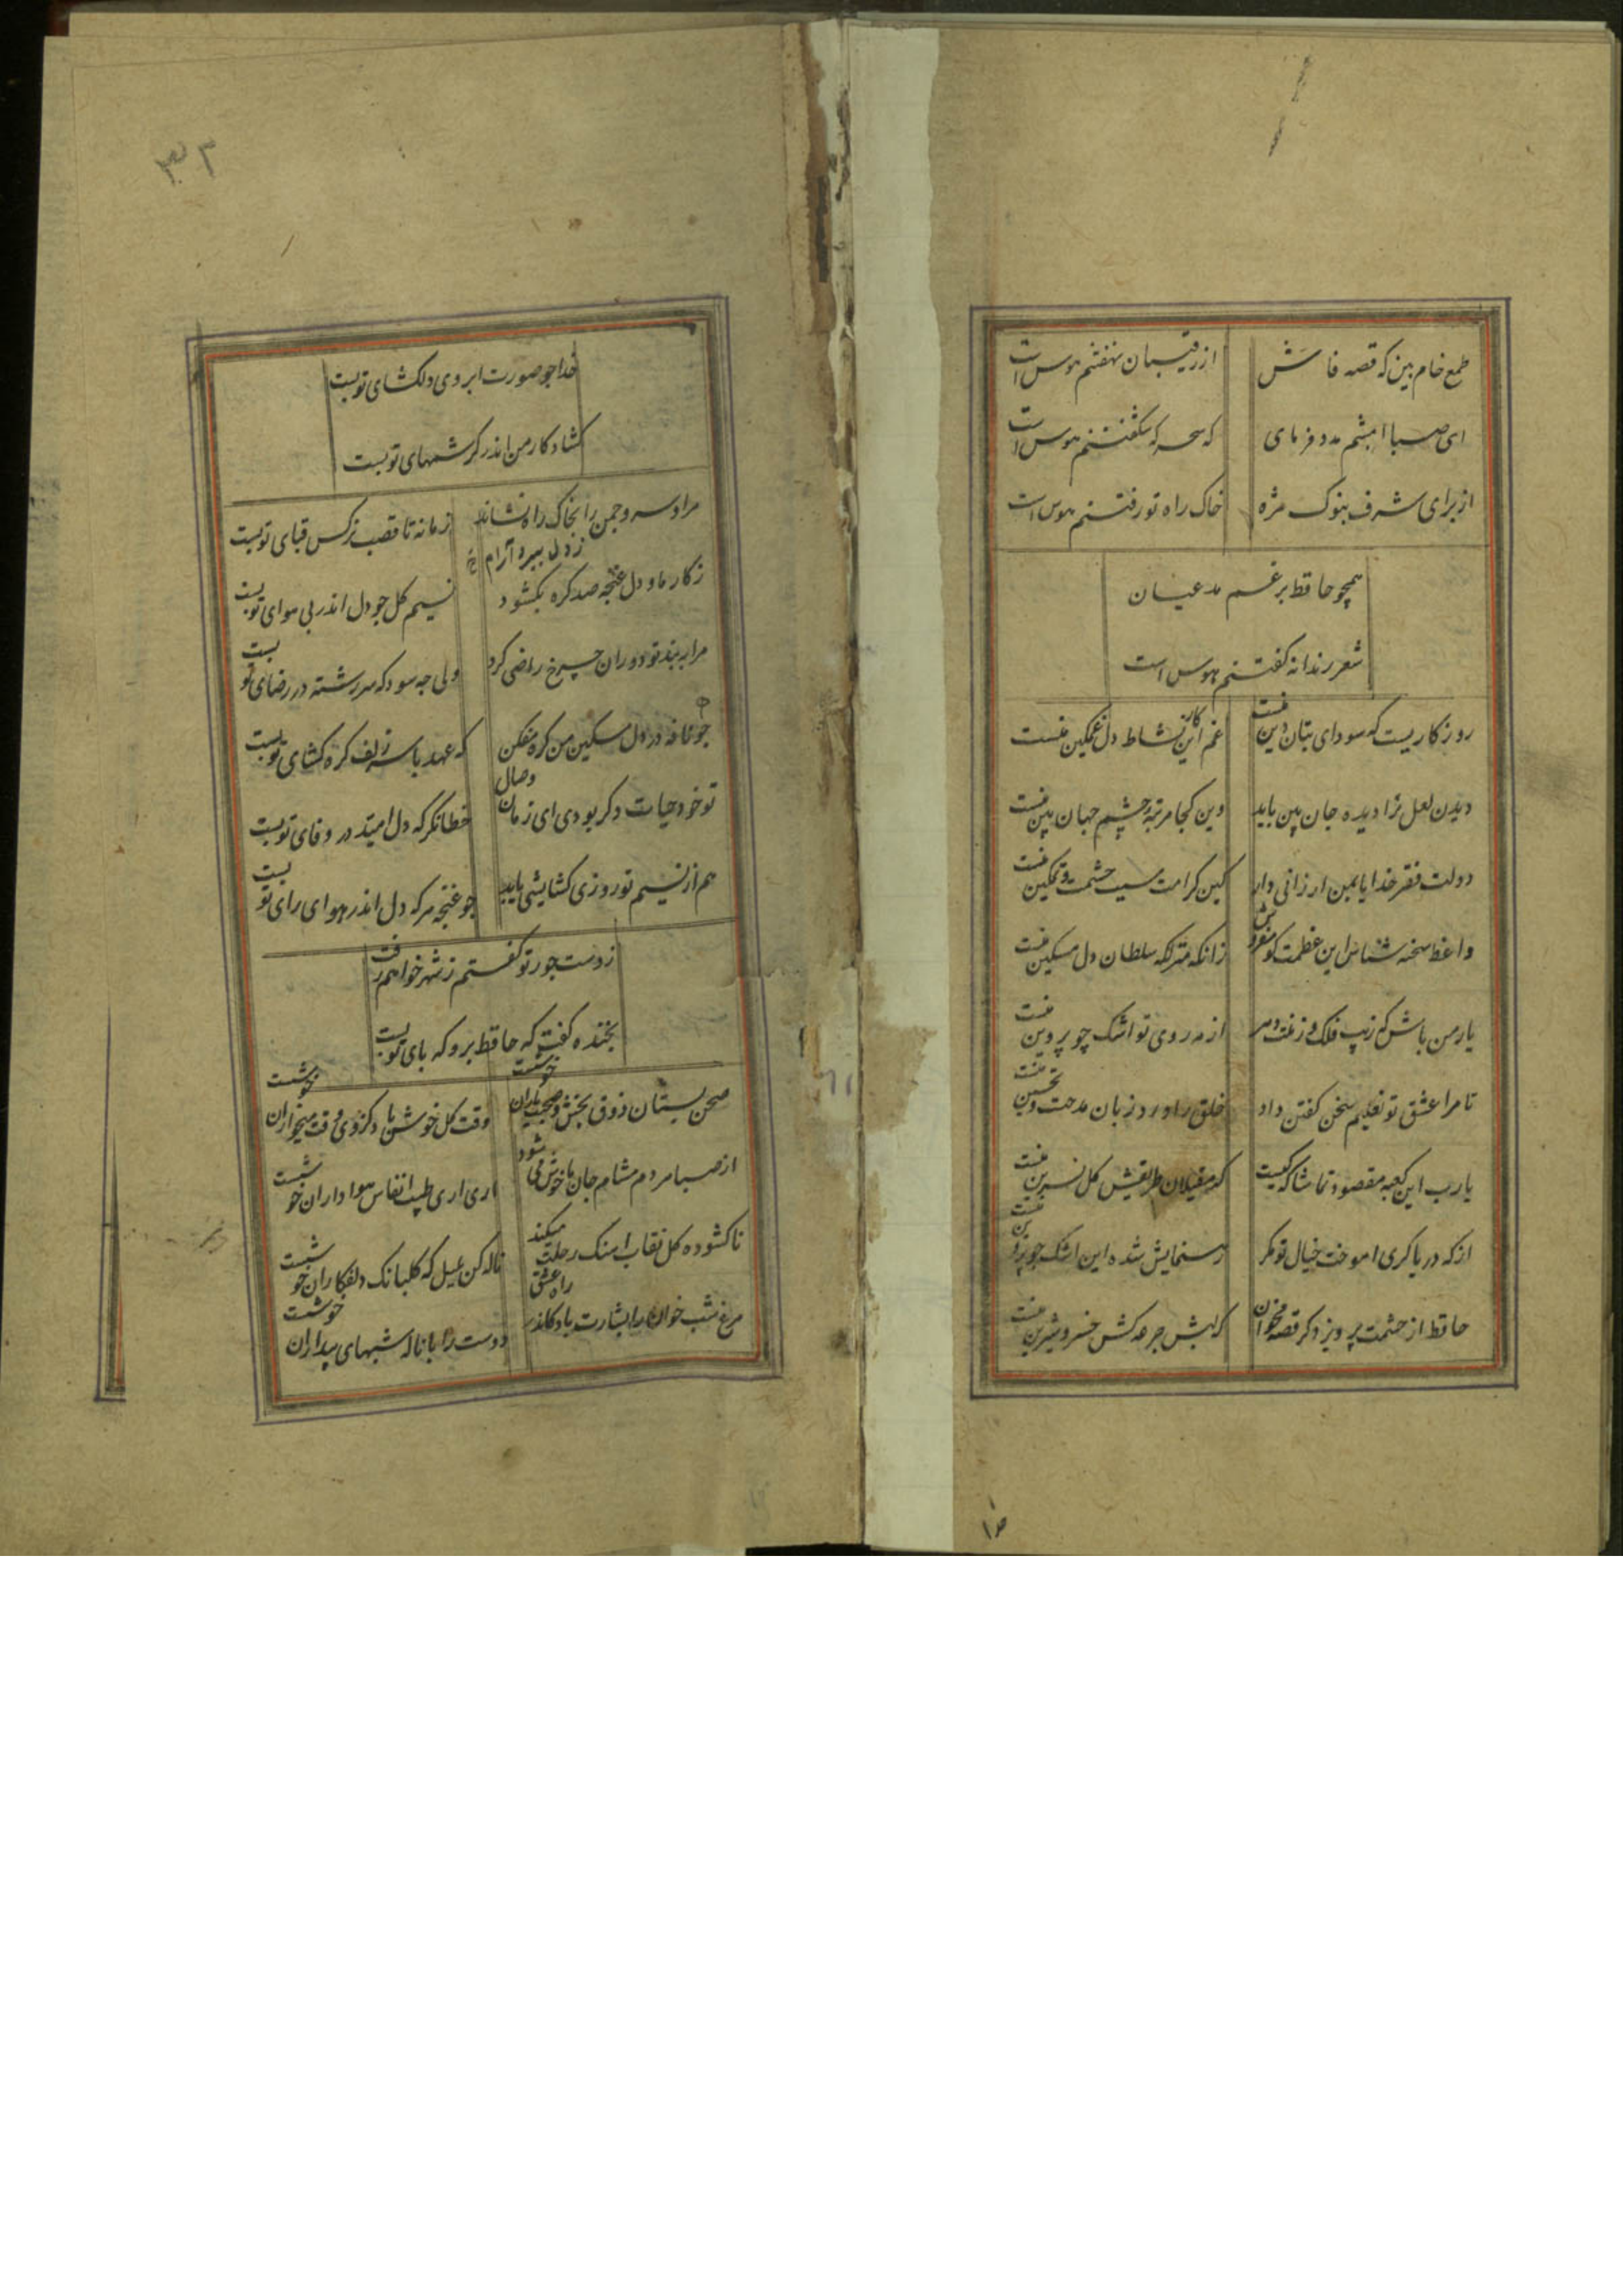 طمع خام بین که قصه فاش از رقیبان نهفتنم هوس است
ای صبا امشبم مدد فرمای که سحرکه شکفتنم هوس است
از برای شرف بنوک مژه خاک راه تو رفتنم هوس است
همچو حافظ برغم مدعیان
شعر رندانه کفتنم هوس است
روزکاریست که سودای بتان دین منست غم این کار نشاط دل غمکین منست
دیدن لعل ترا دیده جان بین باید وین کجا مرتبه چشم جهان بین منست
دولت فقر خدایا بمن ارزانی دار کین کرامت سبب حشمت و تمکین منست
واعظ سخنه شناس این عظمت کو مفروش زانکه منزلکه سلطان دل مسکین منست
یار من باش که زیب فلک و زینت دهر از مه روی تو اشک چو پروین منست
تا مرا عشق تو تعلیم سخن کفتن داد خلق را ورد زبان مدحت و تحسین منست
یارب این کعبه مقصود تماشاکه کیست که مغیلان طریقش کل نسرین منست
از که دریا کری اموخت خیال تو مکر رهنمایش شده این اشک چو پروین منست
حافظ از حشمت پرویز دکر قصه مخوان که لبش جرعه کش خسرو شیرین منست
۱۵
۳۳
خدا چو صورت ابروی دلکشای تو بست
کشاد کار من اندر کرشمهای تو بست
مرا و سرو چمن را بخاک راه نشاند زمانه تا قصب نرکس قبای تو بست
ز دل ببرد آرام
ز کار ما و دل غنچه صد کره بکشود نسیم کل چو دل اندر پی هوای تو بست
مرا به بند تو دوران چرخ راضی کرد ولی چه سود که سررشته در رضای تو بست
چو نافه در دل مسکین من کره مفکن که عهد با سر زلف کره کشای تو بست
تو خود حیات دکر بودی ای زمان وصال خطا نکر که دل امید در وفای تو بست
هم از نسیم تو روزی کشایشی یابد چو غنچه هرکه دل اندر هوای رای تو بست
ز دست جور تو کفتم ز شهر خواهم رفت
بخنده کفت که حافظ برو که پای تو بست
صحن بستان ذوق بخش و صحبت یاران خوشست وقت کل خوش باد کز وی وقت میخواران خوشست
از صبا هردم مشام جان ما خوش می شود اری اری طیب انفاس هواداران خوشست
ناکشوده کل نقاب اهنک رحلت میکند ناله کن بلبل که کلبانک دلفکاران خوشست
مرغ شب خوان را بشارت باد کاندر راه عشق دوست را با ناله شبهای بیداران خوشست